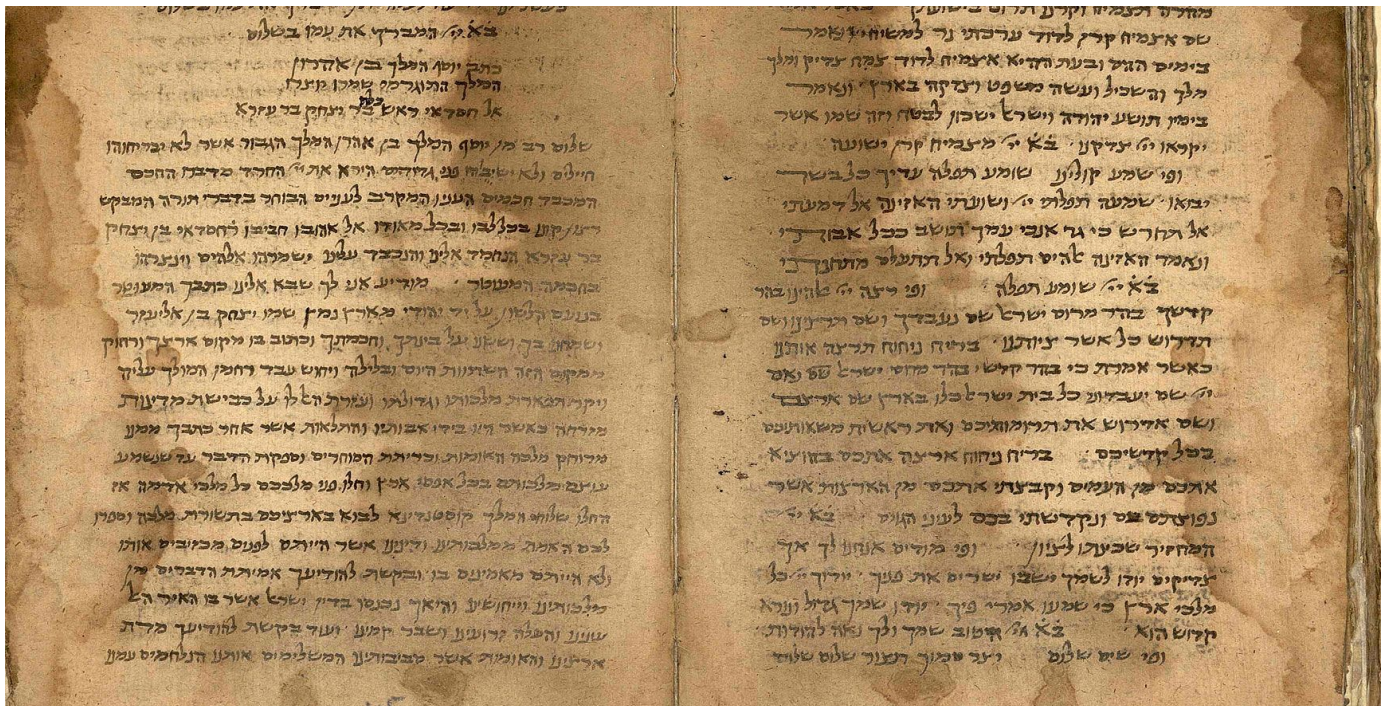 שם אצמיח קרן לדוד ערכתי נר למשיחי ונאמר
בימים ההם ובעת ההיא אצמיח לדוד צמח צדיק ומלך
מלך והשכיל ועשה משפט וצדקה בארץ ונאמר
בימיו תושע יהודה וישראל ישכון לבטח וזה שמו אשר
יקראו ייי צדקנו בא ייי מצמיח קרן ישועה
ופי שמע קולינו שומע תפלה עדיך כל בשר
יבואו שמעה תפלתי ייי ושועתי האזינה אל דמעתי
אל תחרש כי גר אנכי עמך תושב ככל אבותי
ונאמר האזינה אלהים תפלתי ואל תתעלם מתחנתי
בא ייי שומע תפלה ופי רצה ייי אלהינו בהר
קדשך בהר מרום ישראל שם נעבדך ושם תדרשנו ושם
תדרוש כל אשר ציותנו בריח ניחוח תרצה אותנו
כאשר אמרת כי בהר קדשי בהר מרום ישראל נאם
ייי שם יעבדוני כל בית ישראל כלו בארץ שם ארצם
ושם אדרוש את תרומותיכם ואת ראשית משאותיכם
בכל קדשיכם בריח ניחוח ארצה אתכם בהוציאי
אתכם מן העמים וקבצתי אתכם מן הארצות אשר
נפוצתם בם ונקדשתי בכם לעיני הגוים בא ייי
המחזיר שכינתו לציון ופי מודים אנחנו לך אך
צדיקים יודו לשמך ישבו ישרים את פניך יודוך ייי כל
מלכי ארץ כי שמעו אמרי פיך יודו שמך גדול ונורא
קדוש הוא בא ייי הטוב שמך ולך נאה להודות
ופי שים שלום יצר סמוך תצור שלום שלום
בא ייי המברך את עמו בשלום
כתב יוסף המלך בן אהרון
המלך התוגרמי שמרו יוצרו
אל חסדאי ראש כלה בר יצחק בר עזרא
שלום רב מן יוסף המלך בן אהרן המלך הגבור אשר לא יבריחוהו
חיילים ולא ישיבוהו פני גדודים הירא את ייי החרד מדברו החכם
המכבד חכמים העניו המקרב לעניים הבוחר בדברי תורה המבקש
רצון קונו בכל לבו ובכל מאודו אל אהבנו חביבנו ר חסדאי בן יצחק
בר עזרא הנחמד אלינו והנכבד עלינו ישמרהו אלהים וינצרהו
בחכמה המעוטר מודיע אני לך שבא אלינו כתבך המעוטר
בנועם הלשון על יד יהודי מארץ נמץ שמו יצחק בן אליעזר
ושמחנו בך וששנו על בינתך וחכמתך וכתוב בו מקום ארצך ורחוק
ויחוש עבד רחמן המולך עליה
ויקר תפארת מלכותו וגדולתו ועזרת האל לו על כבישת מדינות
מזרחה כאשר היו בידי אבותיו והתלאות אשר אחר כתבך ממנו
מרוחק מלכה האומות וכריתת הסוחרים וספקות הדבר עד שנשמע
עוצם מלכותם בכל אפסי ארץ וחלו פני מלככם כל מלכי אדמה אז
החלו שלוחי המלך קוסטנדינא לבוא בארציכם בתשורת מלכה וספרו
לכם האמת ממלכותינו ודינינו אשר הייתם לפנים מכזיבים אותו
ולא הייתם מאמינים בו ובקשת להודיעך אמיתת הדברים מן
מלכותינו וייחושינו והיאך נכנסו בדין ישראל אשר בו האיר האל
עינינו והפלה זרועינו ושבר קמינו ועוד בקשת להודיעך מדת
ארצינו והאומות אשר סביבותינו המשלימים אותנו הנלחמים עמנו